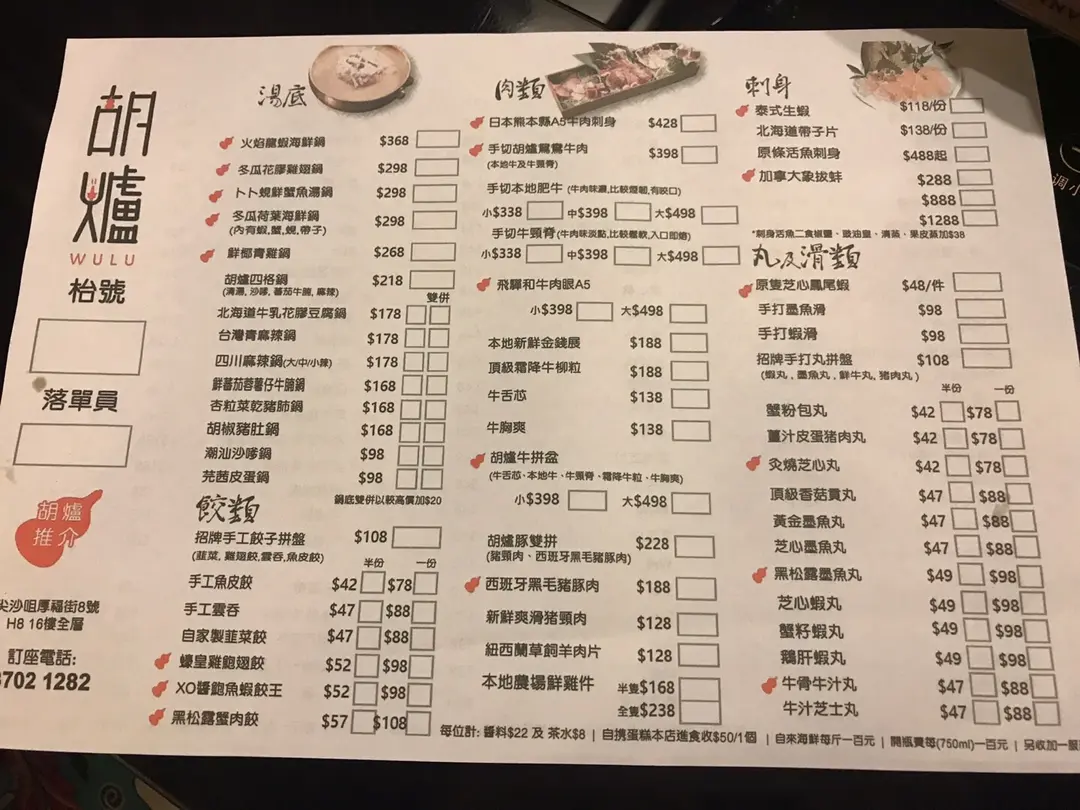 胡
爐
WULU
枱號
落單員
胡爐
推介
尖沙咀厚福街8號
H8 16樓全層
訂座電話:
3702 1282
湯底
火焰龍蝦海鮮鍋 $368
冬瓜花膠雞翅鍋 $298
卜卜蜆鮮蟹魚湯鍋 $298
冬瓜荷葉海鮮鍋 $298
(內有蝦,蟹,蜆,帶子)
鮮椰青雞鍋 $268
胡爐四格鍋 $218
(清湯, 沙嗲, 蕃茄牛腩, 麻辣)
雙併
北海道牛乳花膠豆腐鍋 $178
台灣青麻辣鍋 $178
四川麻辣鍋(大/中/小辣) $178
鮮蕃茄蓉薯仔牛腩鍋 $168
杏粒菜乾豬肺鍋 $168
胡椒豬肚鍋 $168
潮汕沙嗲鍋 $98
芫茜皮蛋鍋 $98
鍋底雙併以較高價加$20
餃類
招牌手工餃子拼盤 $108
(韮菜, 雞翅餃,雲吞,魚皮餃)
半份 一份
手工魚皮餃 $42 $78
手工雲吞 $47 $88
自家製韮菜餃 $47 $88
蠔皇雞鮑翅餃 $52 $98
XO醬鮑魚蝦餃王 $52 $98
黑松露蟹肉餃 $57 $108
肉類
日本熊本縣A5牛肉刺身 $428
手切胡爐鴛鴦牛肉 $398
(本地牛及牛頸脊)
手切本地肥牛 (牛肉味濃,比較煙韌,有咬口)
小$338 中$398 大$498
手切牛頸脊 (牛肉味淡點,比較鬆軟,入口即溶)
小$338 中$398 大$498
飛驒和牛肉眼A5
小$398 大$498
本地新鮮金錢展 $188
頂級霜降牛柳粒 $188
牛舌芯 $138
牛胸爽 $138
胡爐牛拼盆
(牛舌芯、本地牛、牛頸脊、霜降牛粒、牛胸爽)
小$398 大$498
胡爐豚雙拼 $228
(豬頸肉、西班牙黑毛豬豚肉)
西班牙黑毛豬豚肉 $188
新鮮爽滑豬頸肉 $128
紐西蘭草飼羊肉片 $128
本地農場鮮雞件 半隻$168
全隻$238
刺身
泰式生蝦 $118/份
北海道帶子片 $138/份
原條活魚刺身 $488起
加拿大象拔蚌 $288
$888
$1288
*刺身活魚二食椒鹽、豉油皇、清蒸、果皮蒸加$38
丸及滑類
原隻芝心鳳尾蝦 $48/件
手打墨魚滑 $98
手打蝦滑 $98
招牌手打丸拼盤 $108
(蝦丸, 墨魚丸, 鮮牛丸, 豬肉丸)
半份 一份
蟹粉包丸 $42 $78
薑汁皮蛋豬肉丸 $42 $78
灸燒芝心丸 $42 $78
頂級香菇貢丸 $47 $88
黃金墨魚丸 $47 $88
芝心墨魚丸 $47 $88
黑松露墨魚丸 $49 $98
芝心蝦丸 $49 $98
蟹籽蝦丸 $49 $98
鵝肝蝦丸 $49 $98
牛骨牛汁丸 $47 $88
牛汁芝士丸 $47 $88
每位計: 醬料$22 及 茶水$8 | 自携蛋糕本店進食收$50/1個 | 自來海鮮每斤一百元 | 開瓶費每(750ml)一百元 | 另收加一服